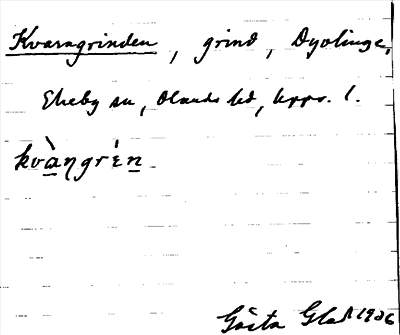 Kvarngrinden, grind, Dyvlinge,
Ekeby sn, Olands hd, Upps. l.
kvàŋgrén
Gösta 1926